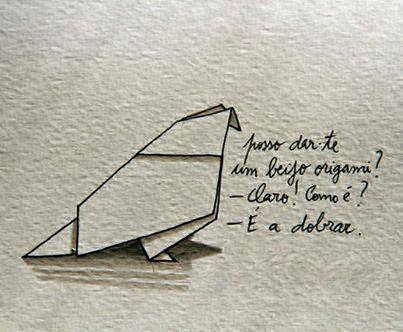 posso dar-te
um beijo origami?
- Claro! Como é?
- É a dobrar.